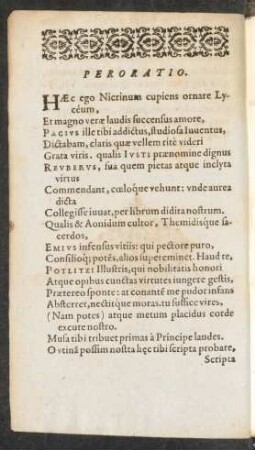 PERORATIO.
HÆc ego Nictinum cupiens ornare Ly-
céum,
Et magno veræ laudis succensus amore,
PACIVS ille tibi addictus, studiosa Iuuentus,
Dictabam, claris quæ vellem ritè videri
Grata viris. qualis IVSTI prænomine dignus
REVBERVS, sua quem pietas atque inclyta
virtus
Commendant, cœloque vehunt: vnde aurea
dicta
Collegisse iuuat, per librum didita nostrum.
Qualis & Aonidum cultor, Themidisque sa-
cerdos,
EMIVS infensus vitiis: qui pectore puro,
Consilioq; potēs, alios supereminet. Haud te,
POTLITZI Illustris, qui nobilitatis honori
Atque opibus cunctas virtutes iungere gestis,
Prætereo sponte: at conantē me pudor infans
Absterret, nectitque moras. tu suffice vires,
(Nam potes) atque metum placidus corde
excute nostro.
Musa tibi tribuet primas à Principe laudes.
O vtinā possim nostra hęc tibi scripta probare,
Scripta